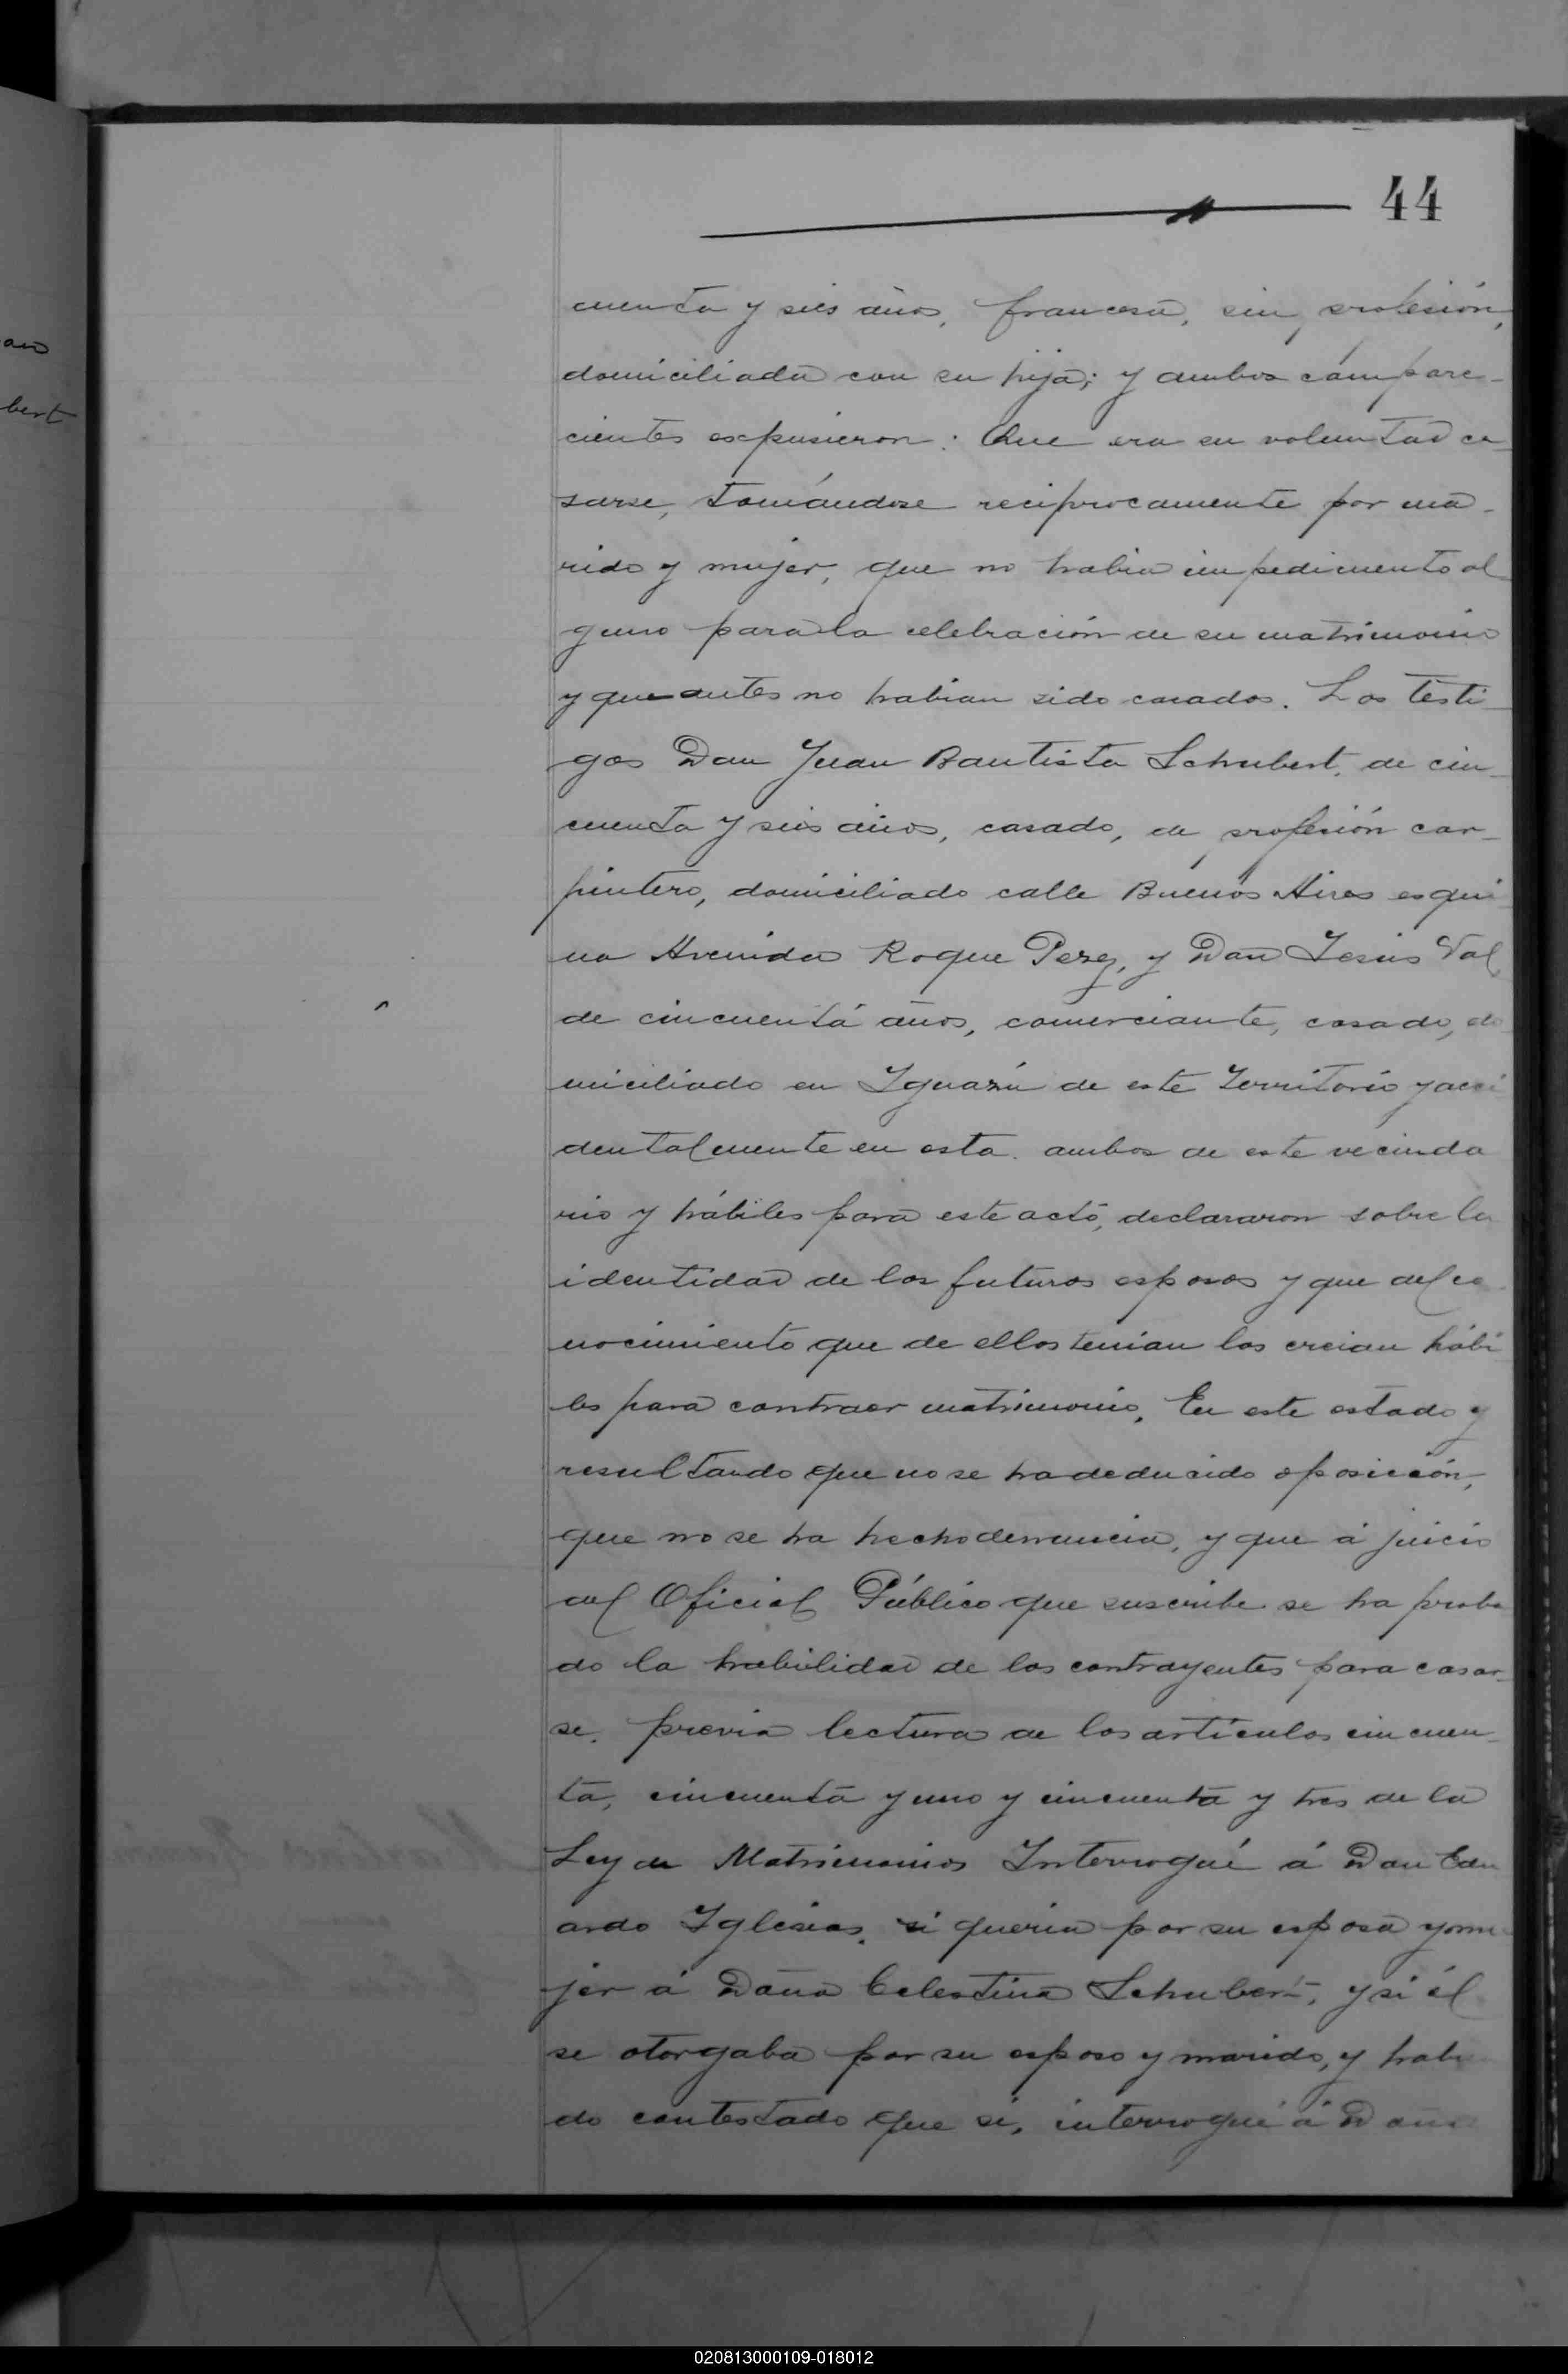 44
cuenta y seis años, francesa, sin profesión,
domiciliada con su hija; y ambos compare-
cientes expusieron: Que era su voluntad ca-
sarse, tomándose reciprocamente por ma-
rido y mujer, que no habia impedimento al
guno para la celebración de su matrimonio
y que antes no habian sido casados. Los testi-
gos Don Juan Bautista Schubert, de cin-
cuenta y seis años, casado, de profesión car-
pintero, domiciliado calle Buenos Aires esqui
na Avenida Roque Perez, y Don Jesús Val
de cincuenta años, comerciante, casado, do
miciliado en Iguazú de este Territorio y acci
dentalmente en esta. ambos de este vecinda
rio y hábiles para este acto, declararon sobre la
identidad de los futuros esposos y que del co
nocimiento que de ellos tenian los creian hábi
les para contraer matrimonio, En este estado y
resultando que no se ha deducido oposición,
que no se ha hecho denuncia, y que á juicio
del Oficial Público que suscribe se ha proba
do la habilidad de los contrayentes para casar-
se. previa lectura de los artículos cincuen-
ta, cincuenta y uno y cincuenta y tres de la
Ley de Matrimonios Interrogué á Don Edu
ardo Iglesias, si queria por su esposa y mu-
jer á Doña Celestina Schubert, y si él
se otorgaba por su esposo y marido, y habi
do contestado que sí, interrogué á Doña
ano
bert
020813000109-018012